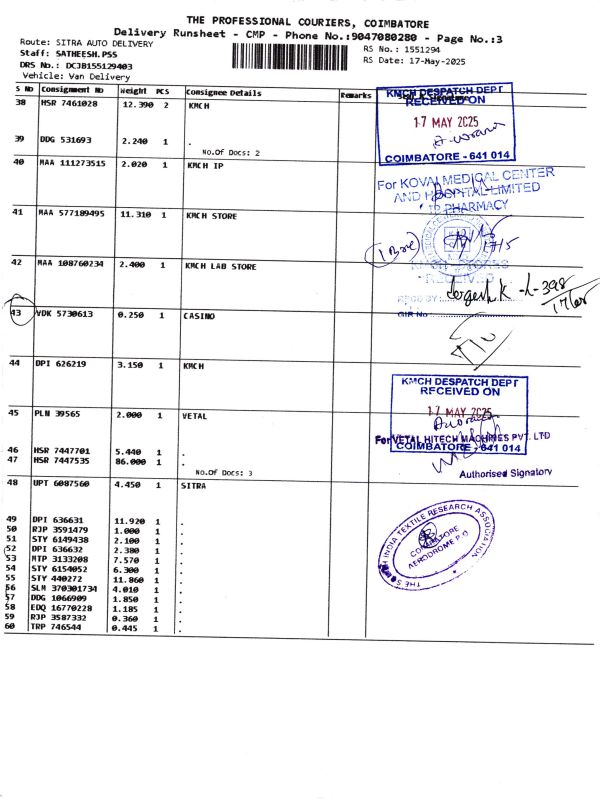 THE PROFESSIONAL COURIERS, COIMBATORE
Delivery Runsheet - CMP - Phone No.:9047080280 - Page No.:3
Route: SITRA AUTO DELIVERY
RS No.: 1551294
Staff: SATHEESH.PSS
RS Date: 17-May-2025
DRS No.: DCJB155129403
Vehicle: Van Delivery
S No Consignment No Weight PCS Consignee Details Remarks
38 HSR 7461028 12.390 2 KMCH
39 DDG 531693 2.240 1 .
No.Of Docs: 2
40 MAA 111273515 2.020 1 KMCH IP
41 MAA 577189495 11.310 1 KMCH STORE
42 MAA 108760234 2.400 1 KMCH LAB STORE
43 VDK 5730613 0.250 1 CASINO
44 DPI 626219 3.150 1 KMCH
45 PLN 39565 2.000 1 VETAL
46 HSR 7447701 5.440 1 .
47 HSR 7447535 86.000 1 .
No.Of Docs: 3
48 UPT 6087560 4.450 1 SITRA
49 DPI 636631 11.920 1 .
50 RJP 3591479 1.000 1 .
51 STY 6149438 2.100 1 .
52 DPI 636632 2.380 1 .
53 MTP 3133208 7.570 1 .
54 STY 6154052 6.300 1 .
55 STY 440272 11.860 1 .
56 SLM 370301734 4.010 1 .
57 DDG 1066909 1.850 1 .
58 EDQ 16770228 1.185 1 .
59 RJP 3587332 0.360 1 .
60 TRP 746544 0.445 1 .
KMCH DESPATCH DEPT
RECEIVED ON
17 MAY 2025
COIMBATORE - 641 014
For KOVAI MEDICAL CENTER
AND HOSPITAL LIMITED
IP PHARMACY
(1 Box)
17/5
KMCH - STORES
RECEIVED
GIR No
KMCH DESPATCH DEPT
RECEIVED ON
17 MAY 2025
For VETAL HITECH MACHINES PVT. LTD
COIMBATORE - 641 014
Authorised Signatory
THE SOUTH INDIA TEXTILE RESEARCH ASSOCIATION
COIMBATORE
AERODROME P.O